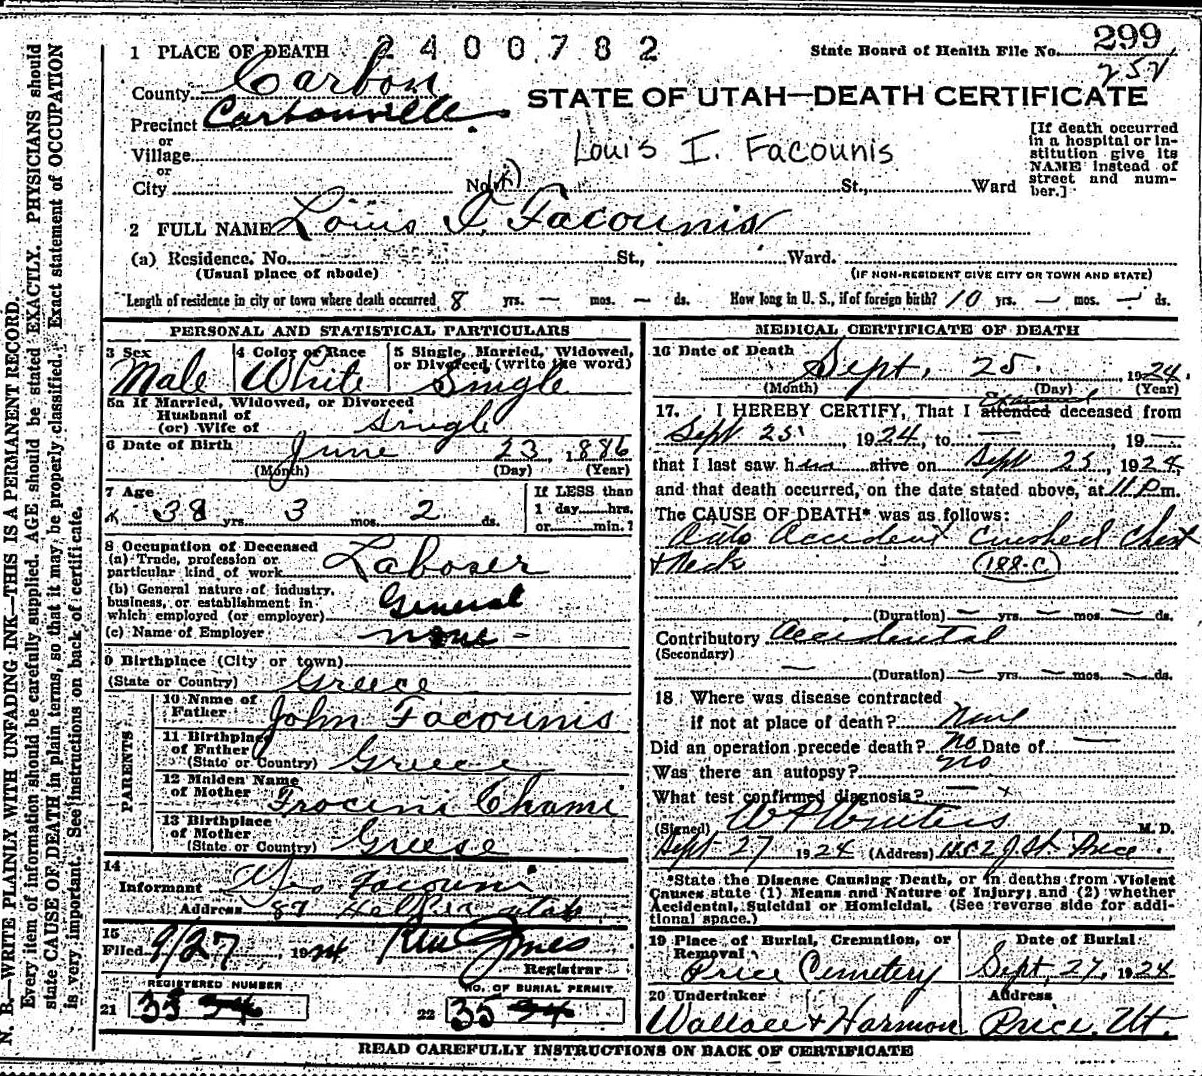 2400782
State Board of Health File No. 299
252
1 PLACE OF DEATH
County Carbon
STATE OF UTAH—DEATH CERTIFICATE
Precinct Carbonville
or
Village
or
City
Louis I. Facounis
No. St., Ward
[If death occurred
in a hospital or in-
stitution give its
NAME instead of
street and num-
ber.]
2 FULL NAME Louis I. Facounis
(a) Residence. No. St., Ward.
(Usual place of abode) (IF NON-RESIDENT GIVE CITY OR TOWN AND STATE)
Length of residence in city or town where death occurred 8 yrs. — mos. — ds. How long in U. S., if of foreign birth? 10 yrs. — mos. — ds.
PERSONAL AND STATISTICAL PARTICULARS
3 Sex
Male
4 Color or Race
White
5 Single, Married, Widowed,
or Divorced (write the word)
Single
5a If Married, Widowed, or Divorced
Husband of
(or) Wife of Single
6 Date of Birth June 23, 1886
(Month) (Day) (Year)
7 Age
38 yrs. 3 mos. 2 ds.
If LESS than
1 day hrs.
or min.?
8 Occupation of Deceased
(a) Trade, profession or
particular kind of work Laborer
(b) General nature of industry,
business, or establishment in
which employed (or employer) General
(c) Name of Employer none -
9 Birthplace (City or town)
(State or Country) Greece
PARENTS
10 Name of
Father John Facounis
11 Birthplace
of Father
(State or Country) Greece
12 Maiden Name
of Mother Frocini Chami
13 Birthplace
of Mother
(State or Country) Greese
14
Informant Facouni
Address 87 Helper Utah
15
Filed 9/27, 1924
Registrar
REGISTERED NUMBER
21 35
NO. OF BURIAL PERMIT
22 35
MEDICAL CERTIFICATE OF DEATH
16 Date of Death
Sept. 25. 1924.
(Month) (Day) (Year)
Examined
17. I HEREBY CERTIFY, That I attended deceased from
Sept 25, 1924, to —, 19—
that I last saw him alive on Sept 25, 1924,
and that death occurred, on the date stated above, at 11 P.m.
The CAUSE OF DEATH* was as follows:
Auto Accident Crushed Chest
+ Neck (188-C)
(Duration) — yrs. — mos. — ds.
Contributory Accidental
(Secondary)
— (Duration) — yrs. — mos. — ds.
18 Where was disease contracted
if not at place of death?
Did an operation precede death? No Date of —
Was there an autopsy? no
What test confirmed diagnosis? —
(Signed) M. D.
Sept 27 1924 (Address) Price.
*State the Disease Causing Death, or in deaths from Violent
Causes state (1) Means and Nature of Injury; and (2) whether
Accidental, Suicidal or Homicidal. (See reverse side for addi-
tional space.)
19 Place of Burial, Cremation, or
Removal
Price Cemetery
Date of Burial
Sept. 27, 1924
20 Undertaker
Wallace & Harmon
Address
Price, Ut.
READ CAREFULLY INSTRUCTIONS ON BACK OF CERTIFICATE
N. B.—WRITE PLAINLY WITH UNFADING INK—THIS IS A PERMANENT RECORD.
Every item of information should be carefully supplied. AGE should be stated EXACTLY. PHYSICIANS should
state CAUSE OF DEATH in plain terms, so that it may be properly classified. Exact statement of OCCUPATION
is very important. See instructions on back of certificate.